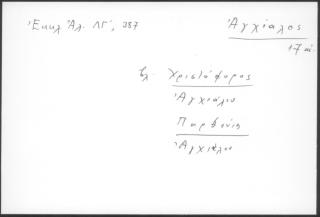 Ἐκκλ Ἀλ. ΛΓ', 387
Ἀγχίαλος
17 αἰ.
βλ. Χριστόφορος
Ἀγχιάλου
Παρθένιος
Ἀγχιάλου